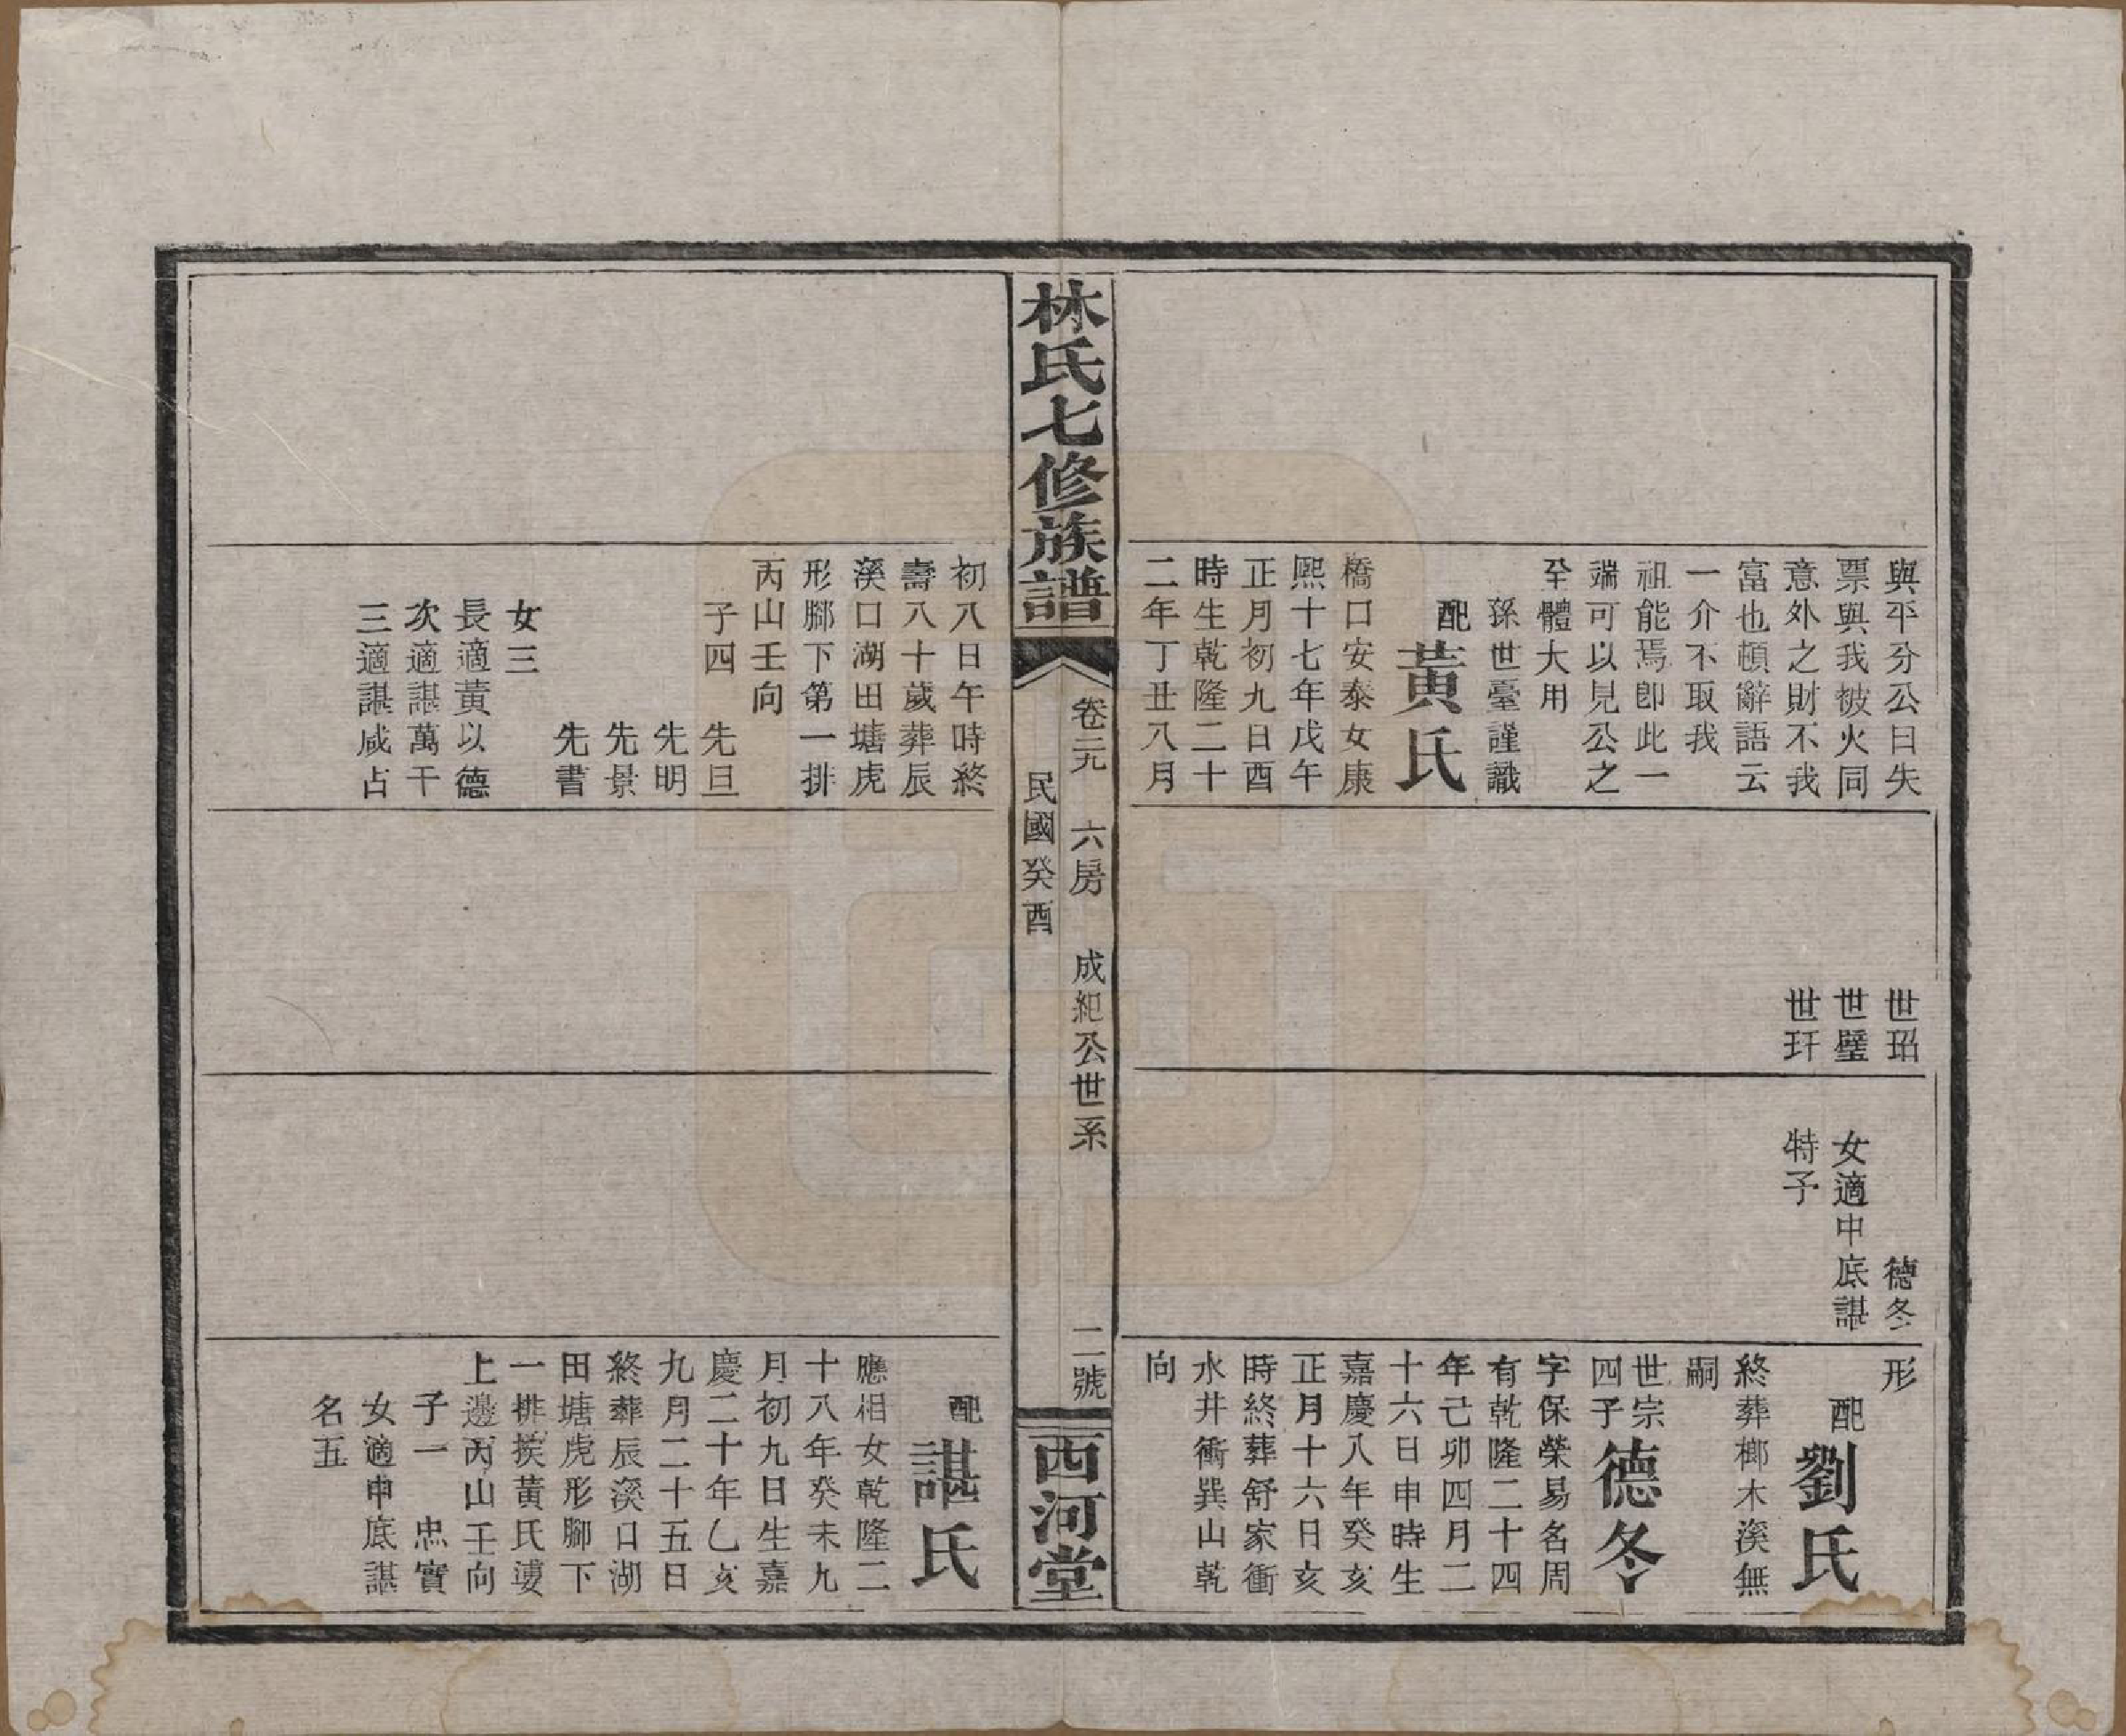 與平分公曰失
票與我被火同
意外之財不我
富也頓辭語云
一介不取我
祖能焉卽此一
端可以見公之
至體大用
孫世臺謹識
配黃氏
橋口安泰女康
熙十七年戊午
正月初九日酉
時生乾隆二十
二年丁丑八月
世玿
世璧
世玕
德冬
女適中底諶
特子
形
配劉氏
終葬榔木溪無
嗣
世宗
四子
德冬
字保榮易名周
有乾隆二十四
年己卯四月二
十六日申時生
嘉慶八年癸亥
正月十六日亥
時終葬舒家衝
水井衝巽山乾
向
林氏七修族譜
卷元 六房 成紀公世系 二號
民國癸酉
西河堂
初八日午時終
壽八十歲葬辰
溪口湖田塘虎
形腳下第一排
丙山壬向
子四 先旦
先明
先景
先書
女三
長適黃以德
次適諶萬干
三適諶咸占
配諶氏
應相女乾隆二
十八年癸未九
月初九日生嘉
慶二十年乙亥
九月二十五日
終葬辰溪口湖
田塘虎形腳下
一排挨黃氏塿
上邊丙山壬向
子一 忠實
女適中底諶
名五